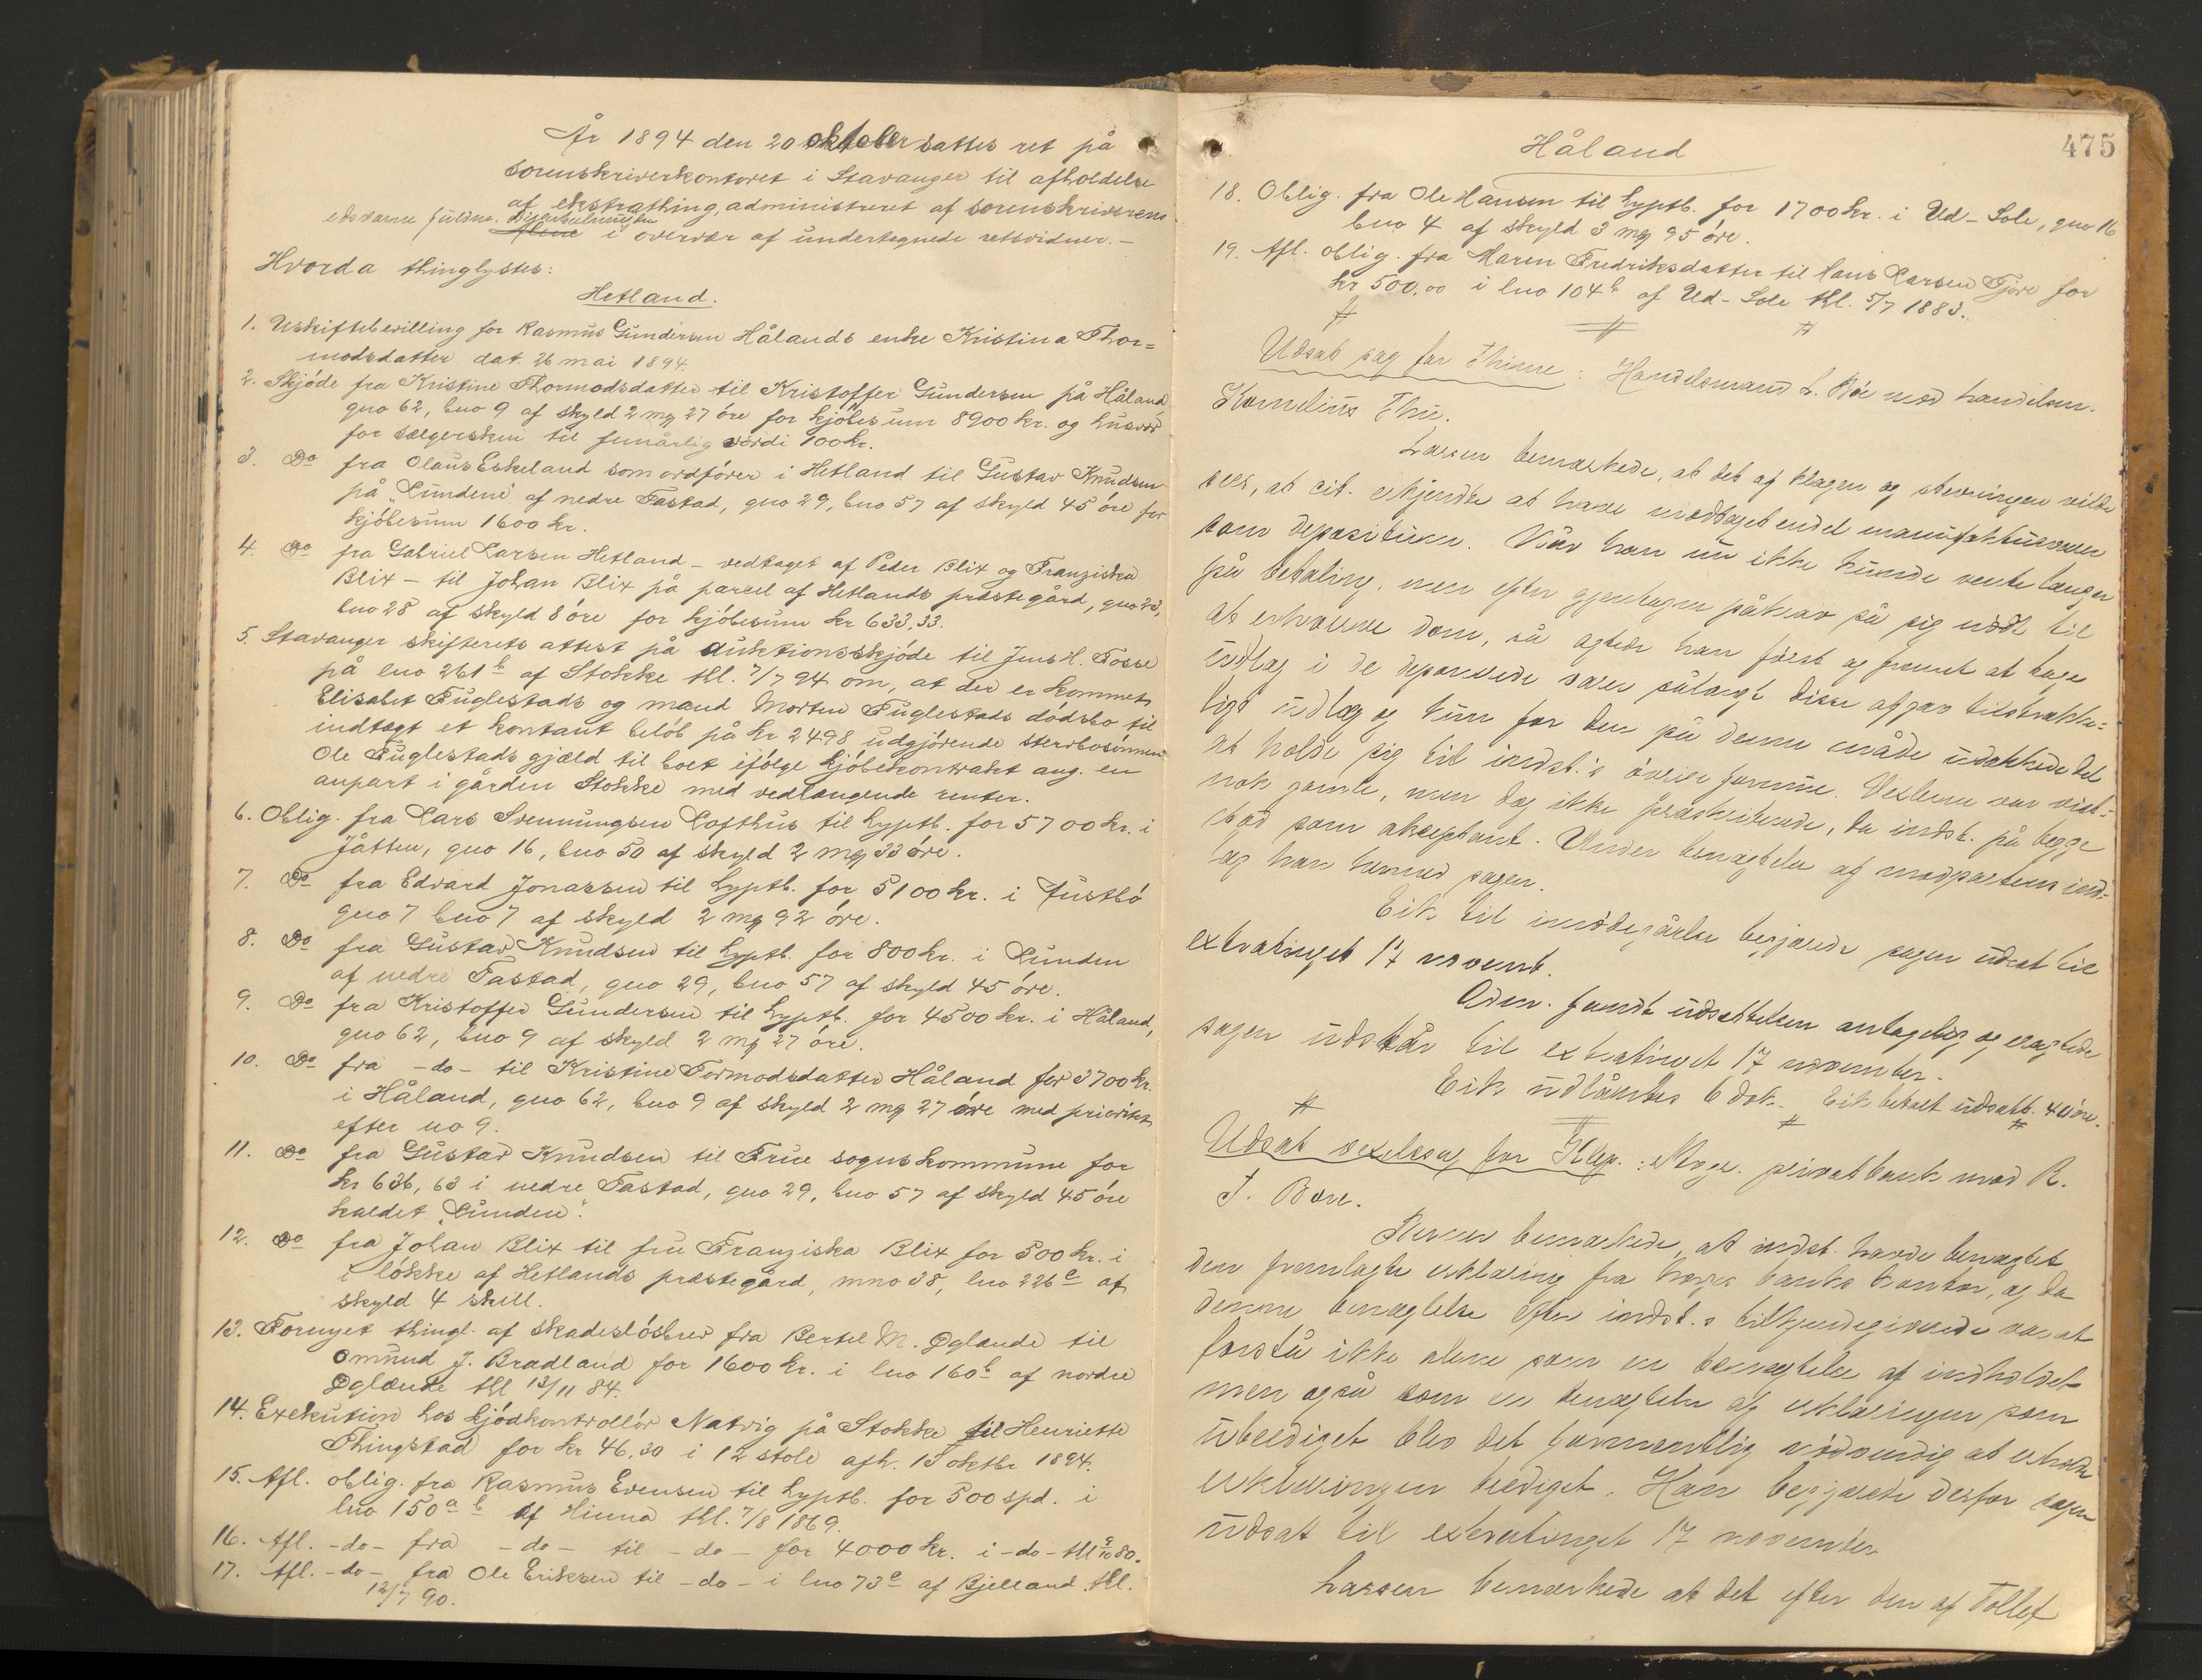 År 1894 den 20 oktober sattes ret på
sorenskriverkontoret i Stavanger til afholdelse
af ekstrathing, administreret af sorenskriverens
edsvorne fuldm.
Alene i overvær af undertegnede retsvidner. —
Hvorda thinglystes:
Hetland.
1. Uskiftebevilling for Rasmus Gundersen Hålands enke Kristina Thor=
modsdatter dat. 26 mai 1894.
2. Skjöde fra Kristine Thormodsdatter til Kristoffer Gundersen på Håland
gno 62, bno 9 af skyld 2 mg 27 öre for kjöbesum 8900 kr. og husvær
for sælgersken til femårlig værdi 100 kr.
3. Do fra Olaus Eskeland som ordförer i Hetland til Gustav Knudsen
på „Lunden“ af nedre Tastad, gno 29, bno 57 af skyld 45 öre for
kjöbesum 1600 kr.
4. Do fra Gabriel Larsen Hetland – vedtaget af Peder Blix og Franziska
Blix – til Johan Blix på parcel af Hetlands præstegård, gno 23,
bno 28 af skyld 8 öre for kjöbesum kr 633,33.
5. Stavanger skifterets attest på auktionsskjöde til Jens H. Fosse
på lno 261b af Stokke thl. 7/7 94 om, at der er kommet
Elisabet Fuglestads og mand Morten Fuglestads dödsbo til
indtægt et kontant belöb på kr 2498 udgjörende stervbosönnen
Ole Fuglestads gjæld til boet ifölge kjöbekontrakt ang. en
anpart i gården Stokke med vedhængende renter.
6. Oblig. fra Lars Svennungsen Lofthus til hyptb. for 5700 kr. i
Jåtten, gno 16, bno 50 af skyld 2 mg 33 öre.
7. Do fra Edvard Jonassen til hyptb. for 5100 kr. i Austbö
gno 7 bno 7 af skyld 2 mg 92 öre.
8. Do fra Gustav Knudsen til hyptb. for 800 kr. i Lunden
af nedre Tastad, gno 29, bno 57 af skyld 45 öre.
9. Do fra Kristoffer Gundersen til hyptb. for 4500 kr. i Håland,
gno 62, bno 9 af skyld 2 mg 27 öre.
10. Do fra -do- til Kristine Tormodsdatter Håland for 3700 kr.
i Håland, gno 62, bno 9 af skyld 2 mg 27 öre med prioritet
efter no 9.
11. Do fra Gustav Knudsen til Frue sognskommune for
kr 636,63 i nedre Tastad, gno 29, bno 57 af skyld 45 öre
kaldet „Lunden“.
12. Do fra Johan Blix til fru Franziska Blix for 500 kr. i
i lökke af Hetlands præstegård, mno 38, lno 226c af
skyld 4 skill.
13. Fornyet thingl. af skadeslösbrev fra Bertel M. Öglænde til
Omund J. Bradland for 1600 kr. i lno 160b af nordre
Öglænde thl 13/11 84.
14. Exekution hos kjödkontrollör Natvig på Stokke til Henriette
Thingstad for kr 46,30 i 12 stole afh. 15 oktbr 1894.
15. Afl. oblig. fra Rasmus Evensen til hyptb. for 500 spd. i
lno 150a b af Hinna thl. 7/8 1869.
16. Afl. -do- fra -do- til -do- for 4000 kr. i -do- thl 9/10 80.
17. Afl. -do- fra Ole Eriksen til -do- i lno 73c af Bjelland thl.
12/7 90.
475
Håland
18. Oblig. fra Ole Hansen til hyptb. for 1700 kr. i Ud-Sole, gno 16
bno 4 af skyld 3 mg 95 öre.
19. Afl. oblig. fra Maren Fredriksdatter til Hans Larsen Tjöre for
kr 500,00 i lno 104b af Ud-Sole thl. 5/7 1883.
Udsat sag for Thime: Handelsmand L. Röe mod handelsm.
Kornelius Thu.
Lassen bemærkede, at det af klagen og stevningen vilde
sees, at cit. erkjendte at have modtaget endel manufakturvarer
som depositum. Når han nu ikke kunde vente længer
på betaling, men efter gjentagen påkrav så sig nödt til
at erhverve dom, så agter han först og fremst at tage
udlæg i de deponerede varer sålangt disse afgav tilstrække=
ligt udlæg og kun for den på denne måde udækkede del
at holde sig til indst.'s övrige formue. Vexlerne var vist=
nok gamle, men dog ikke præskriberede, da indst. på begge
stod som akseptant. Under benægtelse af modpartens ind=
læg han hermed sagen.
Eik til imödegåelse begjærede sagen udsat til
extrathinget 17 novemb.
Adm. fandt udsættelsen antagelig og eragtede
sagen udstår til extrathinget 17 november.
Eik udlåntes 6 dok. Eik betalt udsætt. 40 öre.
Udsat vexelsag for Klep.: Stvgr. privatbank mod R.
T. Bore.
bemærkede, at indst. havde benægtet
den fremlagte erklæring fra Norges banks kontor, og da
denne benægtelse efter indst.s tilkjendegivende var at
forstå ikke alene som en benægtelse af indholdet
men også som en benægtelse af erklæringen som
ubeediget blev det formentlig nödvendig at erholde
erklæringen beediget. Han begjærede derfor sagen
udsat til extrathinget 17 november.
Lassen bemærkede at det efter den af Tollef